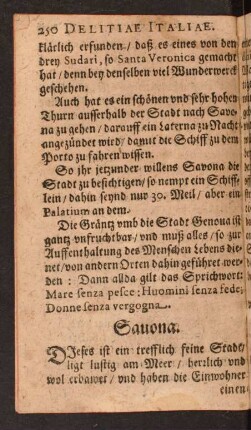 250 DELITIAE ITALIAE.
klärlich erfunden / daß es eines von den
drey Sudari, so Santa Veronica gemacht
hat / denn bey denselben viel Wunderwerck
geschehen.
Auch hat es ein schönen vnd sehr hohen
Thurn ausserhalb der Stadt nach Save-
na zu gehen / darauff ein Laterna zu Nacht
angezündet wird / damit die Schiff zu dem
Porto zu fahren wissen.
So jhr jetzunder willens Savona die
Stadt zu besichtigen / so nempt ein Schiff-
lein / dahin seynd nur 30. Meil / aber ein
Palatium an dem
Die Gräntz vmb die Stadt Genoua ist
gantz vnfruchtbar / vnd muß alles / so zur
Auffenthaltung des Menschen Lebens die-
net / von andern Orten dahin geführet wer-
den : Dann allda gilt das Sprichwort:
Mare senza pesce: Huomini senza fede:
Donne senza vergogna.
Sauona.
DJeses ist ein trefflich feine Stadt /
ligt lustig am Meer / herrlich vnd
wol erbawet / vnd haben die Einwohner
einen